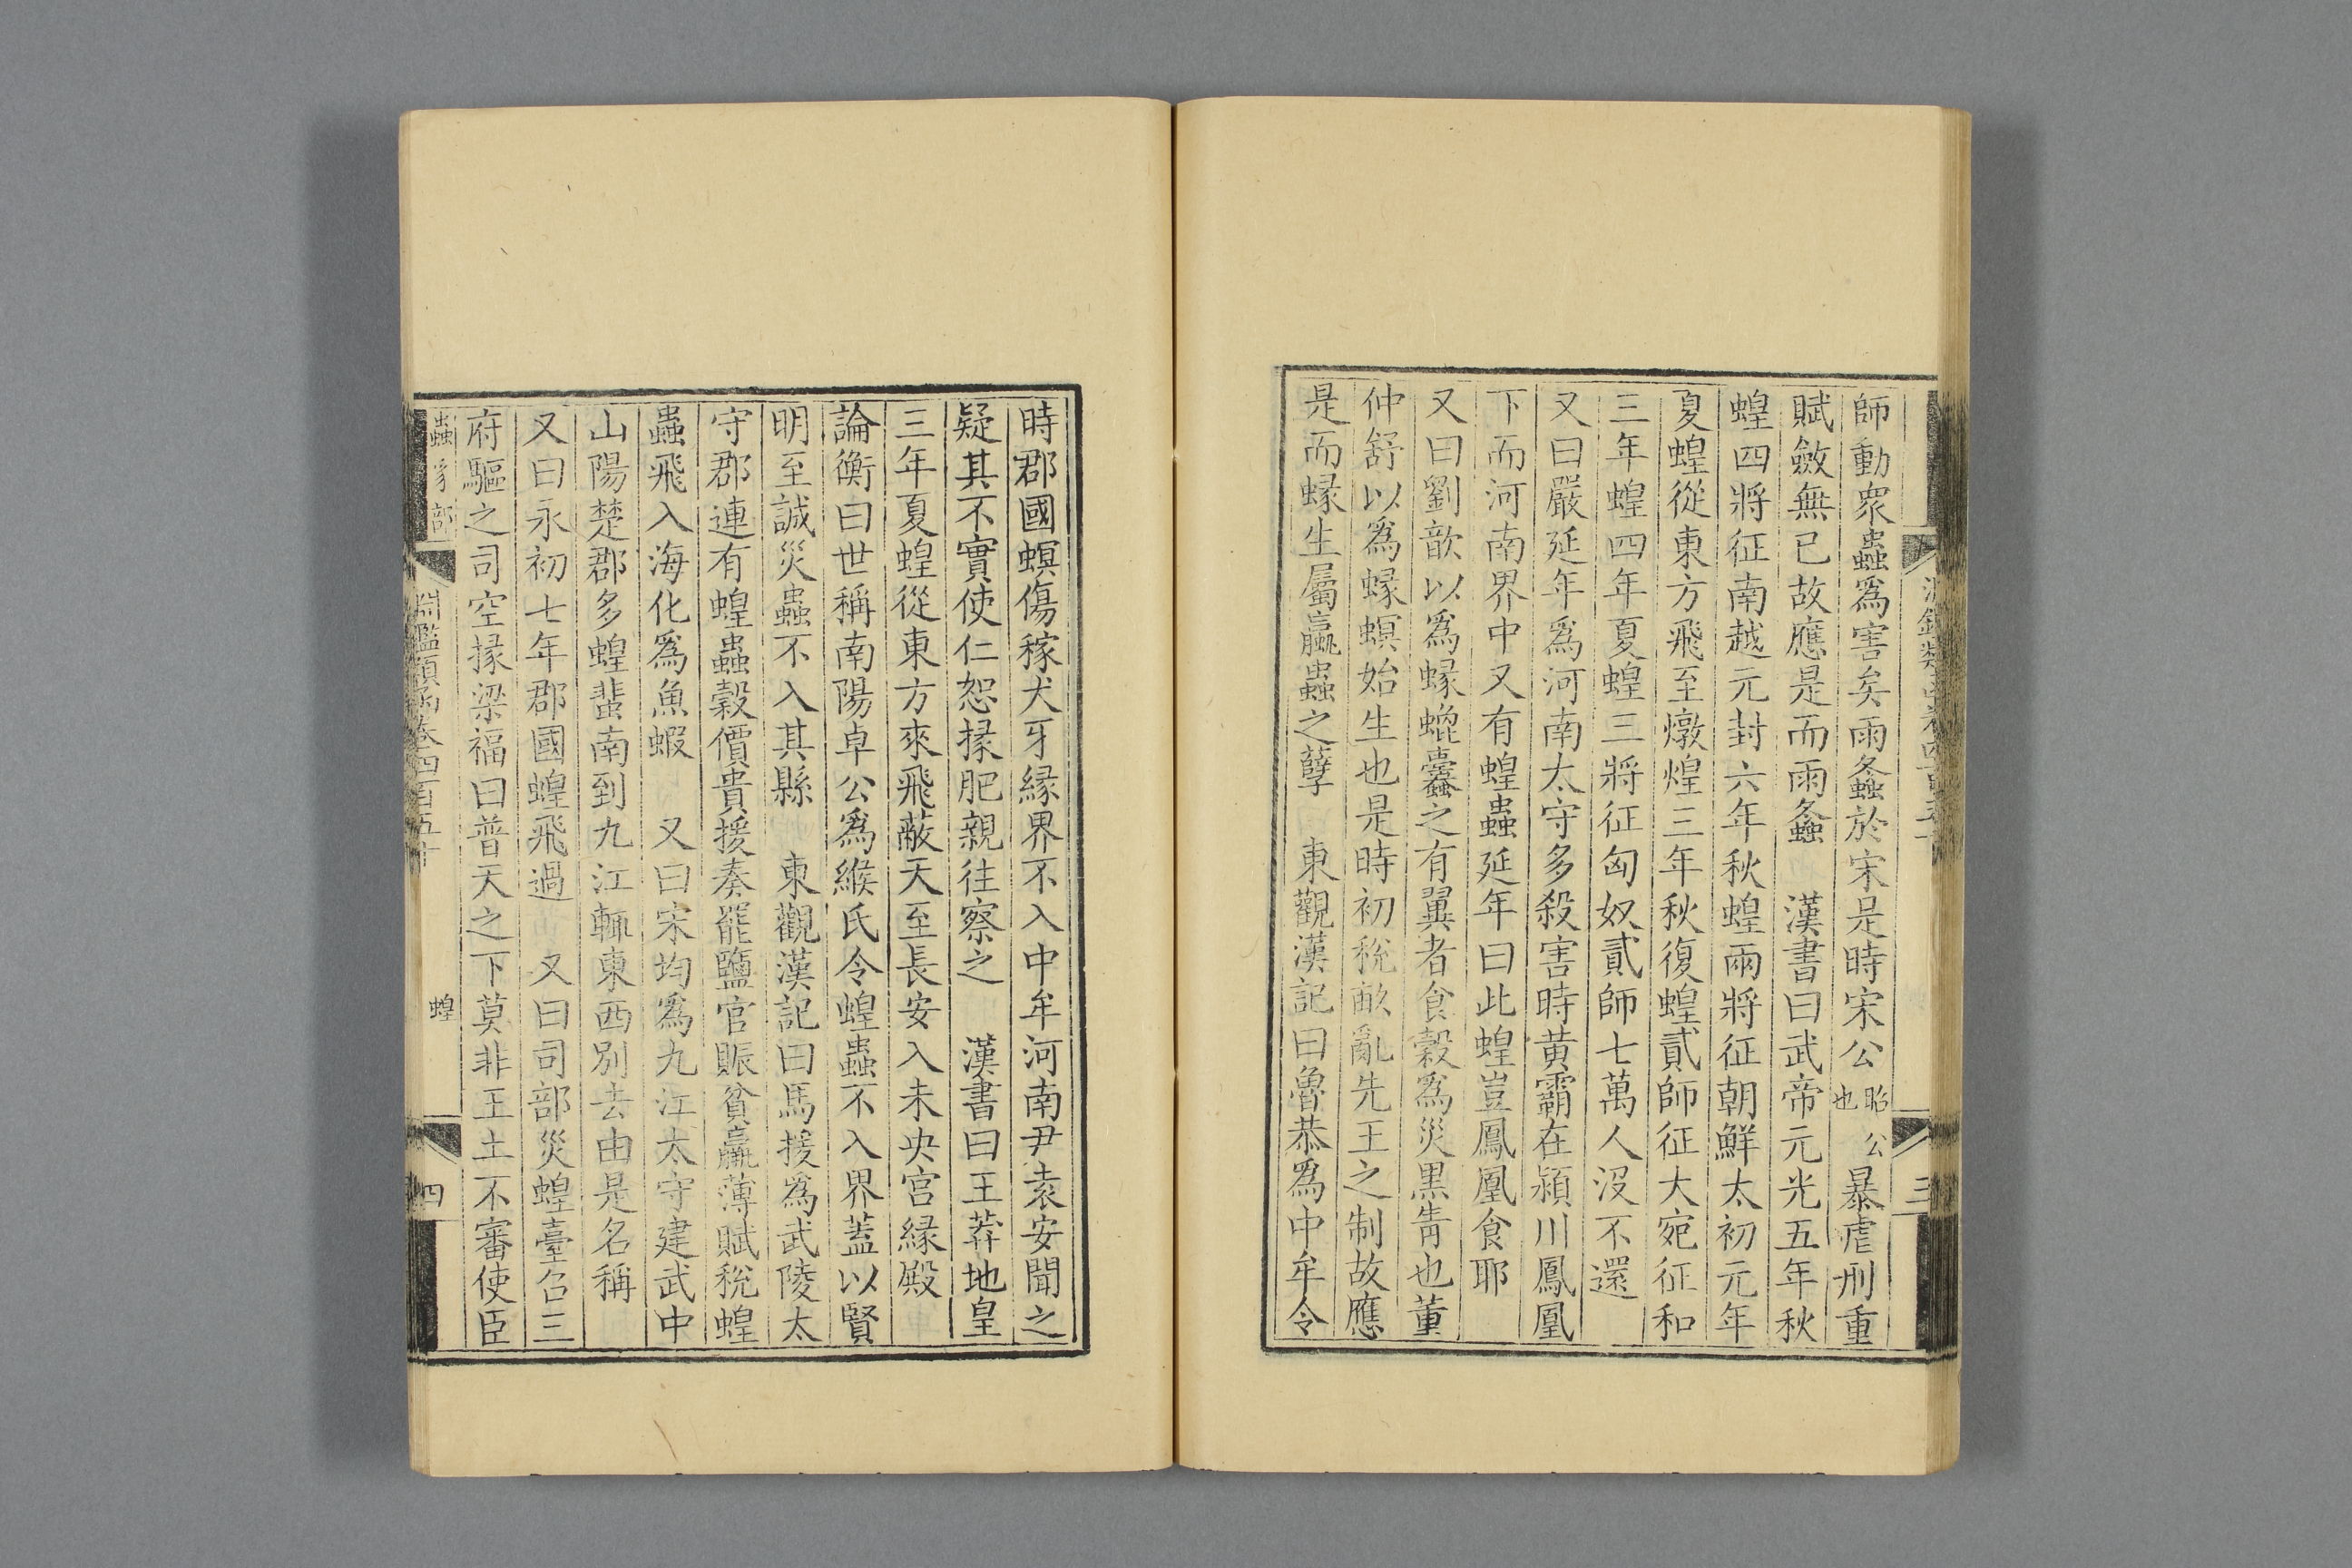 師動衆蟲爲害矣雨螽於宋是時宋公昭公也暴虐刑重
賦斂無已故應是而雨螽　漢書曰武帝元光五年秋
蝗四將征南越元封六年秋蝗兩將征朝鮮太初元年
夏蝗從東方飛至燉煌三年秋復蝗貳師征大宛征和
三年蝗四年夏蝗三將征匈奴貳師七萬人没不還
又曰嚴延年爲河南太守多殺害時黄霸在潁川鳳凰
下而河南界中又有蝗蟲延年曰此蝗豈鳳凰食耶
又曰劉歆以爲蝝螕蠹之有翼者食穀爲災黒眚也董
仲舒以爲蝝螟始生也是時初稅畝亂先王之制故應
是而蝝生屬臝蟲之孽　東觀漢記曰魯恭爲中牟令
時郡國螟傷稼犬牙縁界不入中牟河南尹袁安聞之
疑其不實使仁恕掾肥親往察之　漢書曰王莽地皇
三年夏蝗從東方來飛蔽天至長安入未央宫縁殿
論衡曰世稱南陽卓公爲緱氏令蝗蟲不入界蓋以賢
明至誠災蟲不入其縣　東觀漢記曰馬援爲武陵太
守郡連有蝗蟲穀價貴援奏罷鹽官賑貧羸薄賦稅蝗
蟲飛入海化爲魚蝦　又曰宋均爲九江太守建武中
山陽楚郡多蝗蜚南到九江輒東西別去由是名稱
又曰永初七年郡國蝗飛過　又曰司部災蝗臺召三
府驅之司空掾梁福曰普天之下莫非王土不審使臣
蟲豸部
淵鑑類函卷四百五十
蝗
四